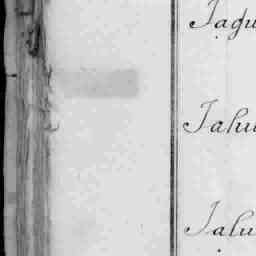 Jagu
Jahu
Jalu